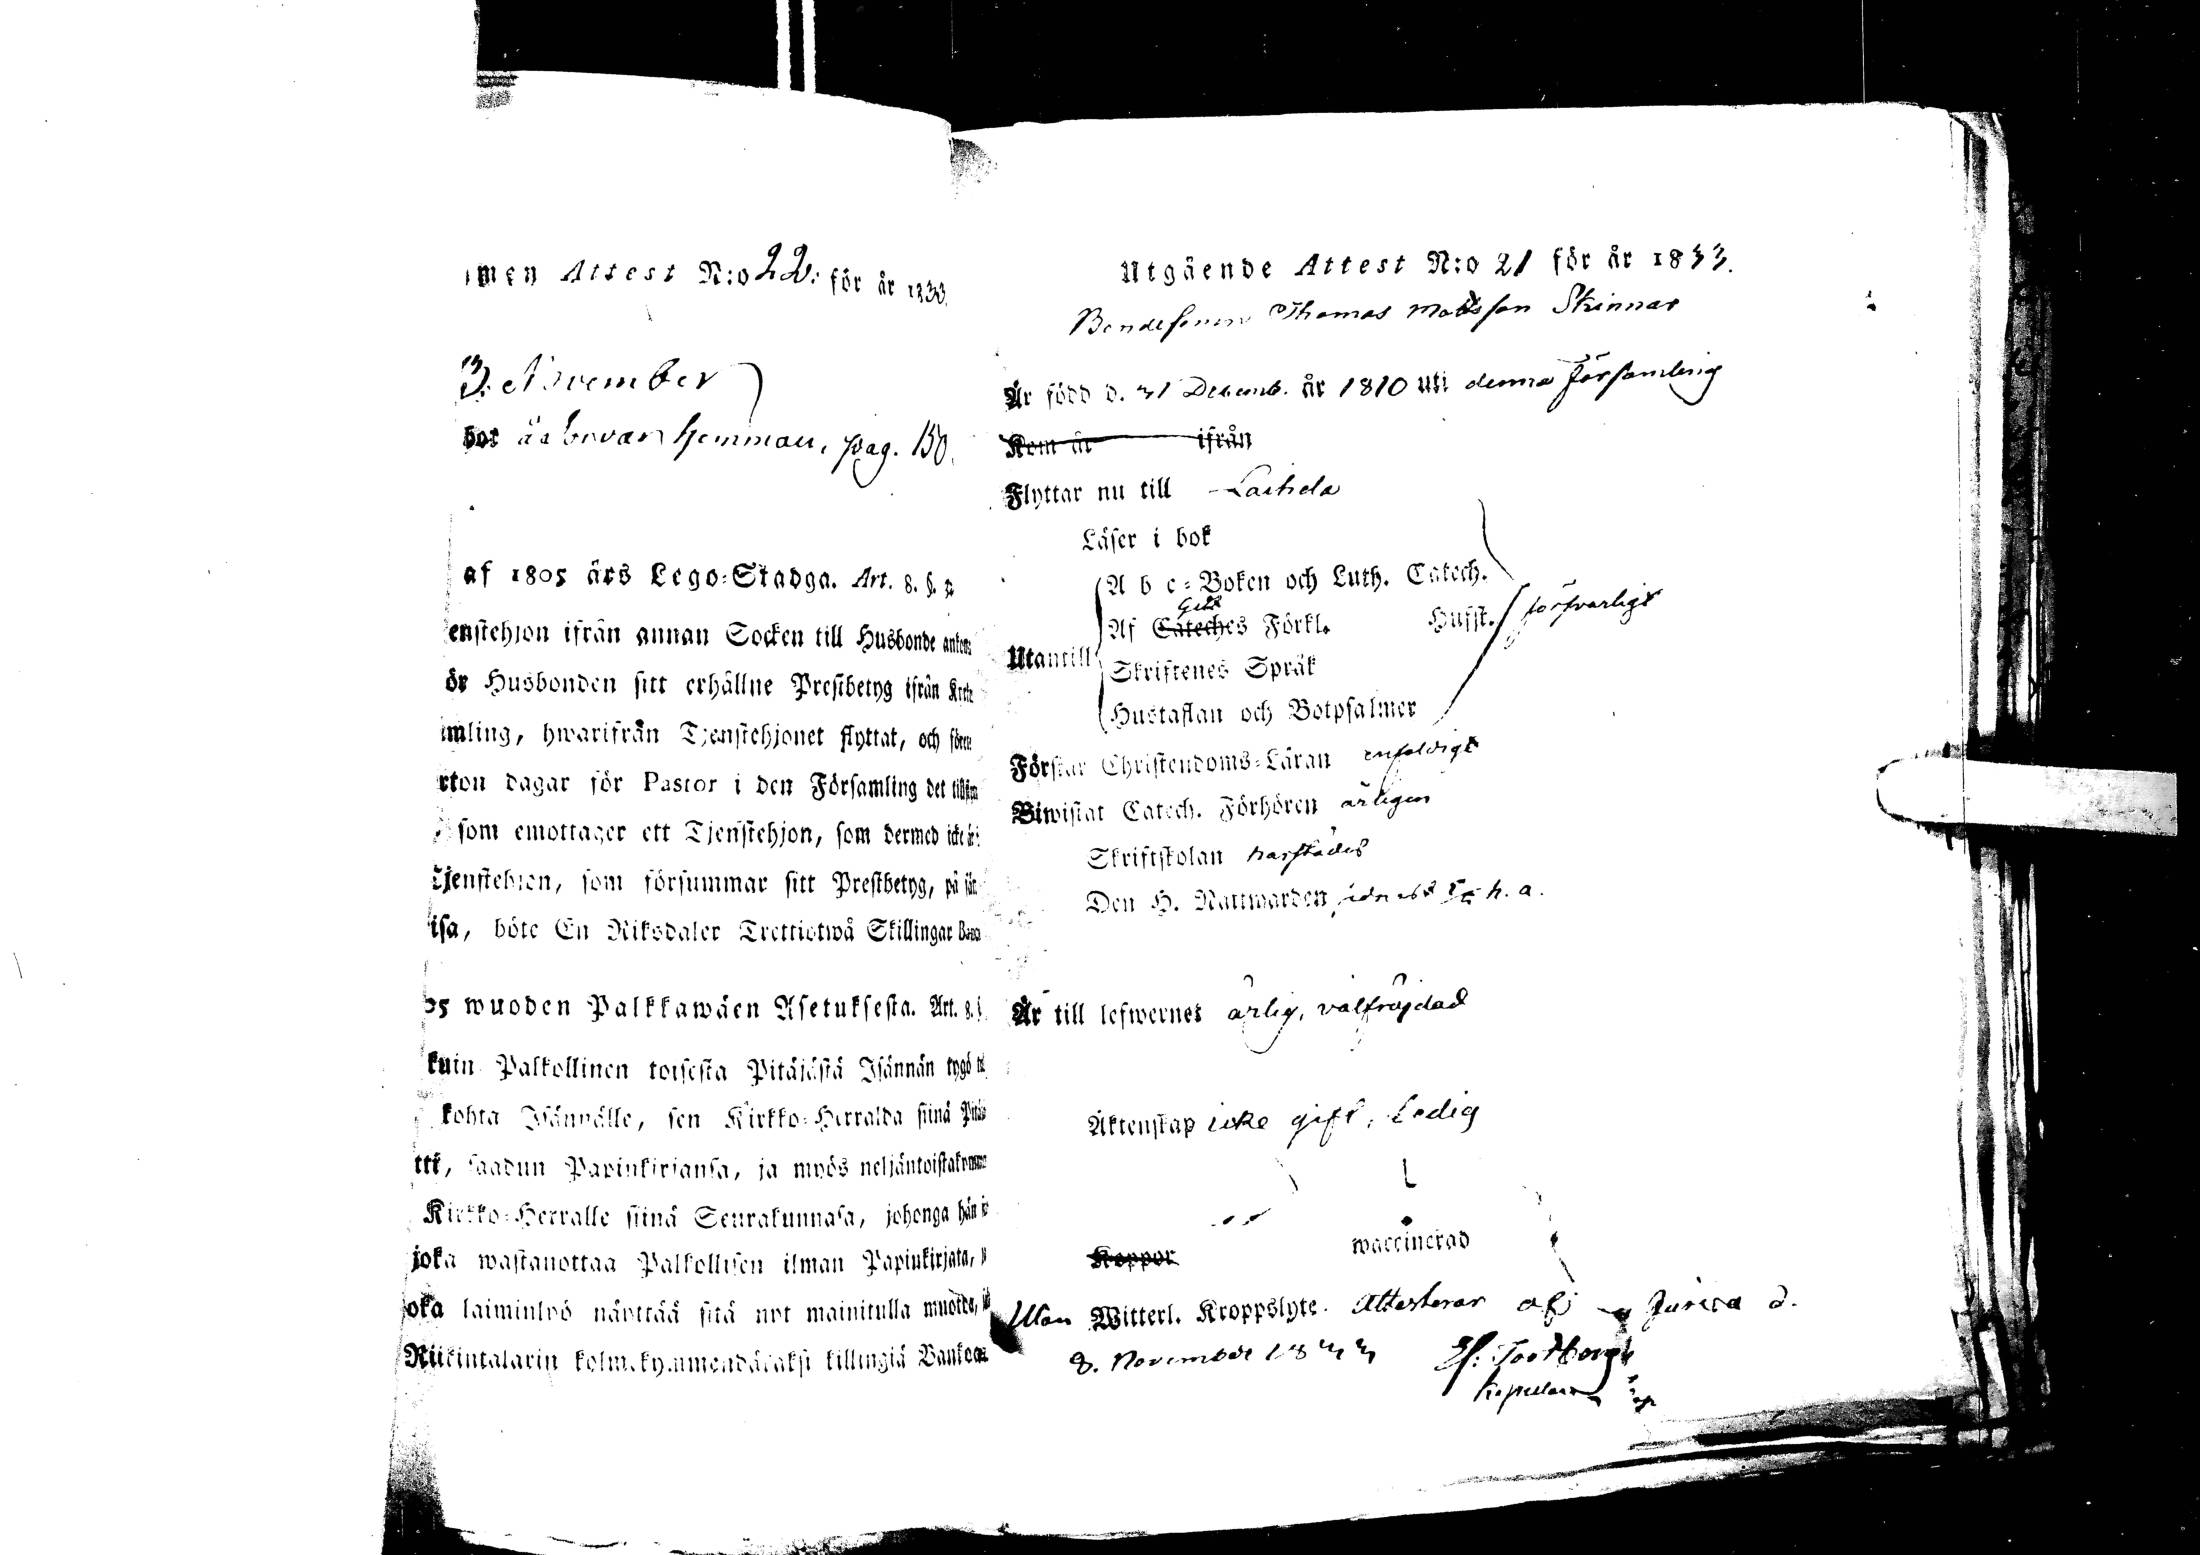 men Attest N:o 22. för år 1833.
3. November
bor å Bovars hemman, pag. 150.
af 1805 års Lego-Stadga. Art. 8. §. 2.
enstehjon ifrån annan Socken till Husbonde
ör Husbonden sitt erhållne Prestbetyg ifrån
mling, hwarifrån Tjenstehjonet flyttat, och
rton dagar för Pastor i den Församling det
som emottager ett Tjenstehjon, som dermed icke
Tjenstehjon, som försummar sitt Prestbetyg, på
isa, böte En Riksdaler Trettiotwå Skillingar
05 wuoden Palkkawäen Asetuksesta. Art. 8.
kuin Palkollinen toisesta Pitäjästä Isännän tygö
kohta Isännälle, sen Kirkko-Herralda siinä
tti, saadun Papinkirjansa, ja myös
Kirkko-Herralle siinä Seurakunnasa, johonga hän
joka wastanottaa Palkollisen ilman Papinkirjata,
oka laiminlyö näyttää sitä nyt mainitulla
Riikintalarin killingiä
Utgående Attest N:o 21 för år 1833.
Bondesonen Thomas Matsson Skinnar
Är född d. 31 Decemb. år 1810 uti denna Församling
Kom år ifrån
Flyttar nu till Laihela
Läser i bok
A b c-Boken och Luth. Catech.
Af Cateches Förkl. Hufst. försvarligt
Utantill
Skriftenes Språk
Hustaflan och Botpsalmer
Förstår Christendoms-Läran enfaldigt
Biwistat Catech. Förhören årligen
Skriftskolan härstädes
Den H. Nattwarden h. a.
Är till lefwernet ärlig, välfrägdad
Äktenskap icke gift, Ledig
Koppor waccinerad
Utan Witterl. Kroppslyte. Attesterar af Jurva d.
8. November 1833